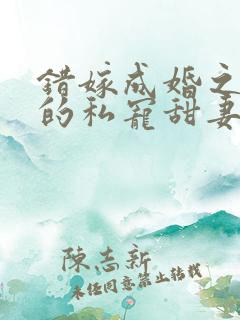 错嫁成婚之
的私宠甜妻
陈志新
未经同意禁止转载